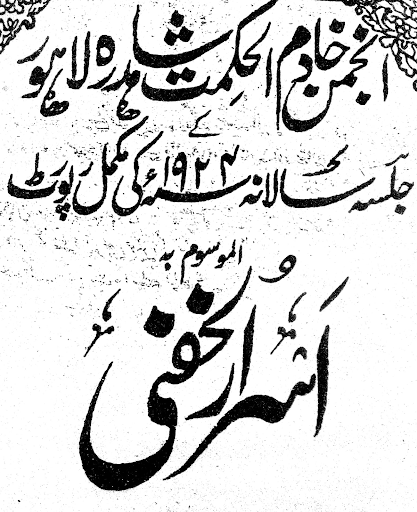 انجمن خادم الحکمت شاہدرہ لاہور
کے
جلسہ سالانہ ۱۹۲۴ء کی مکمل رپورٹ
الموسوم بہ
اسرار الخفی